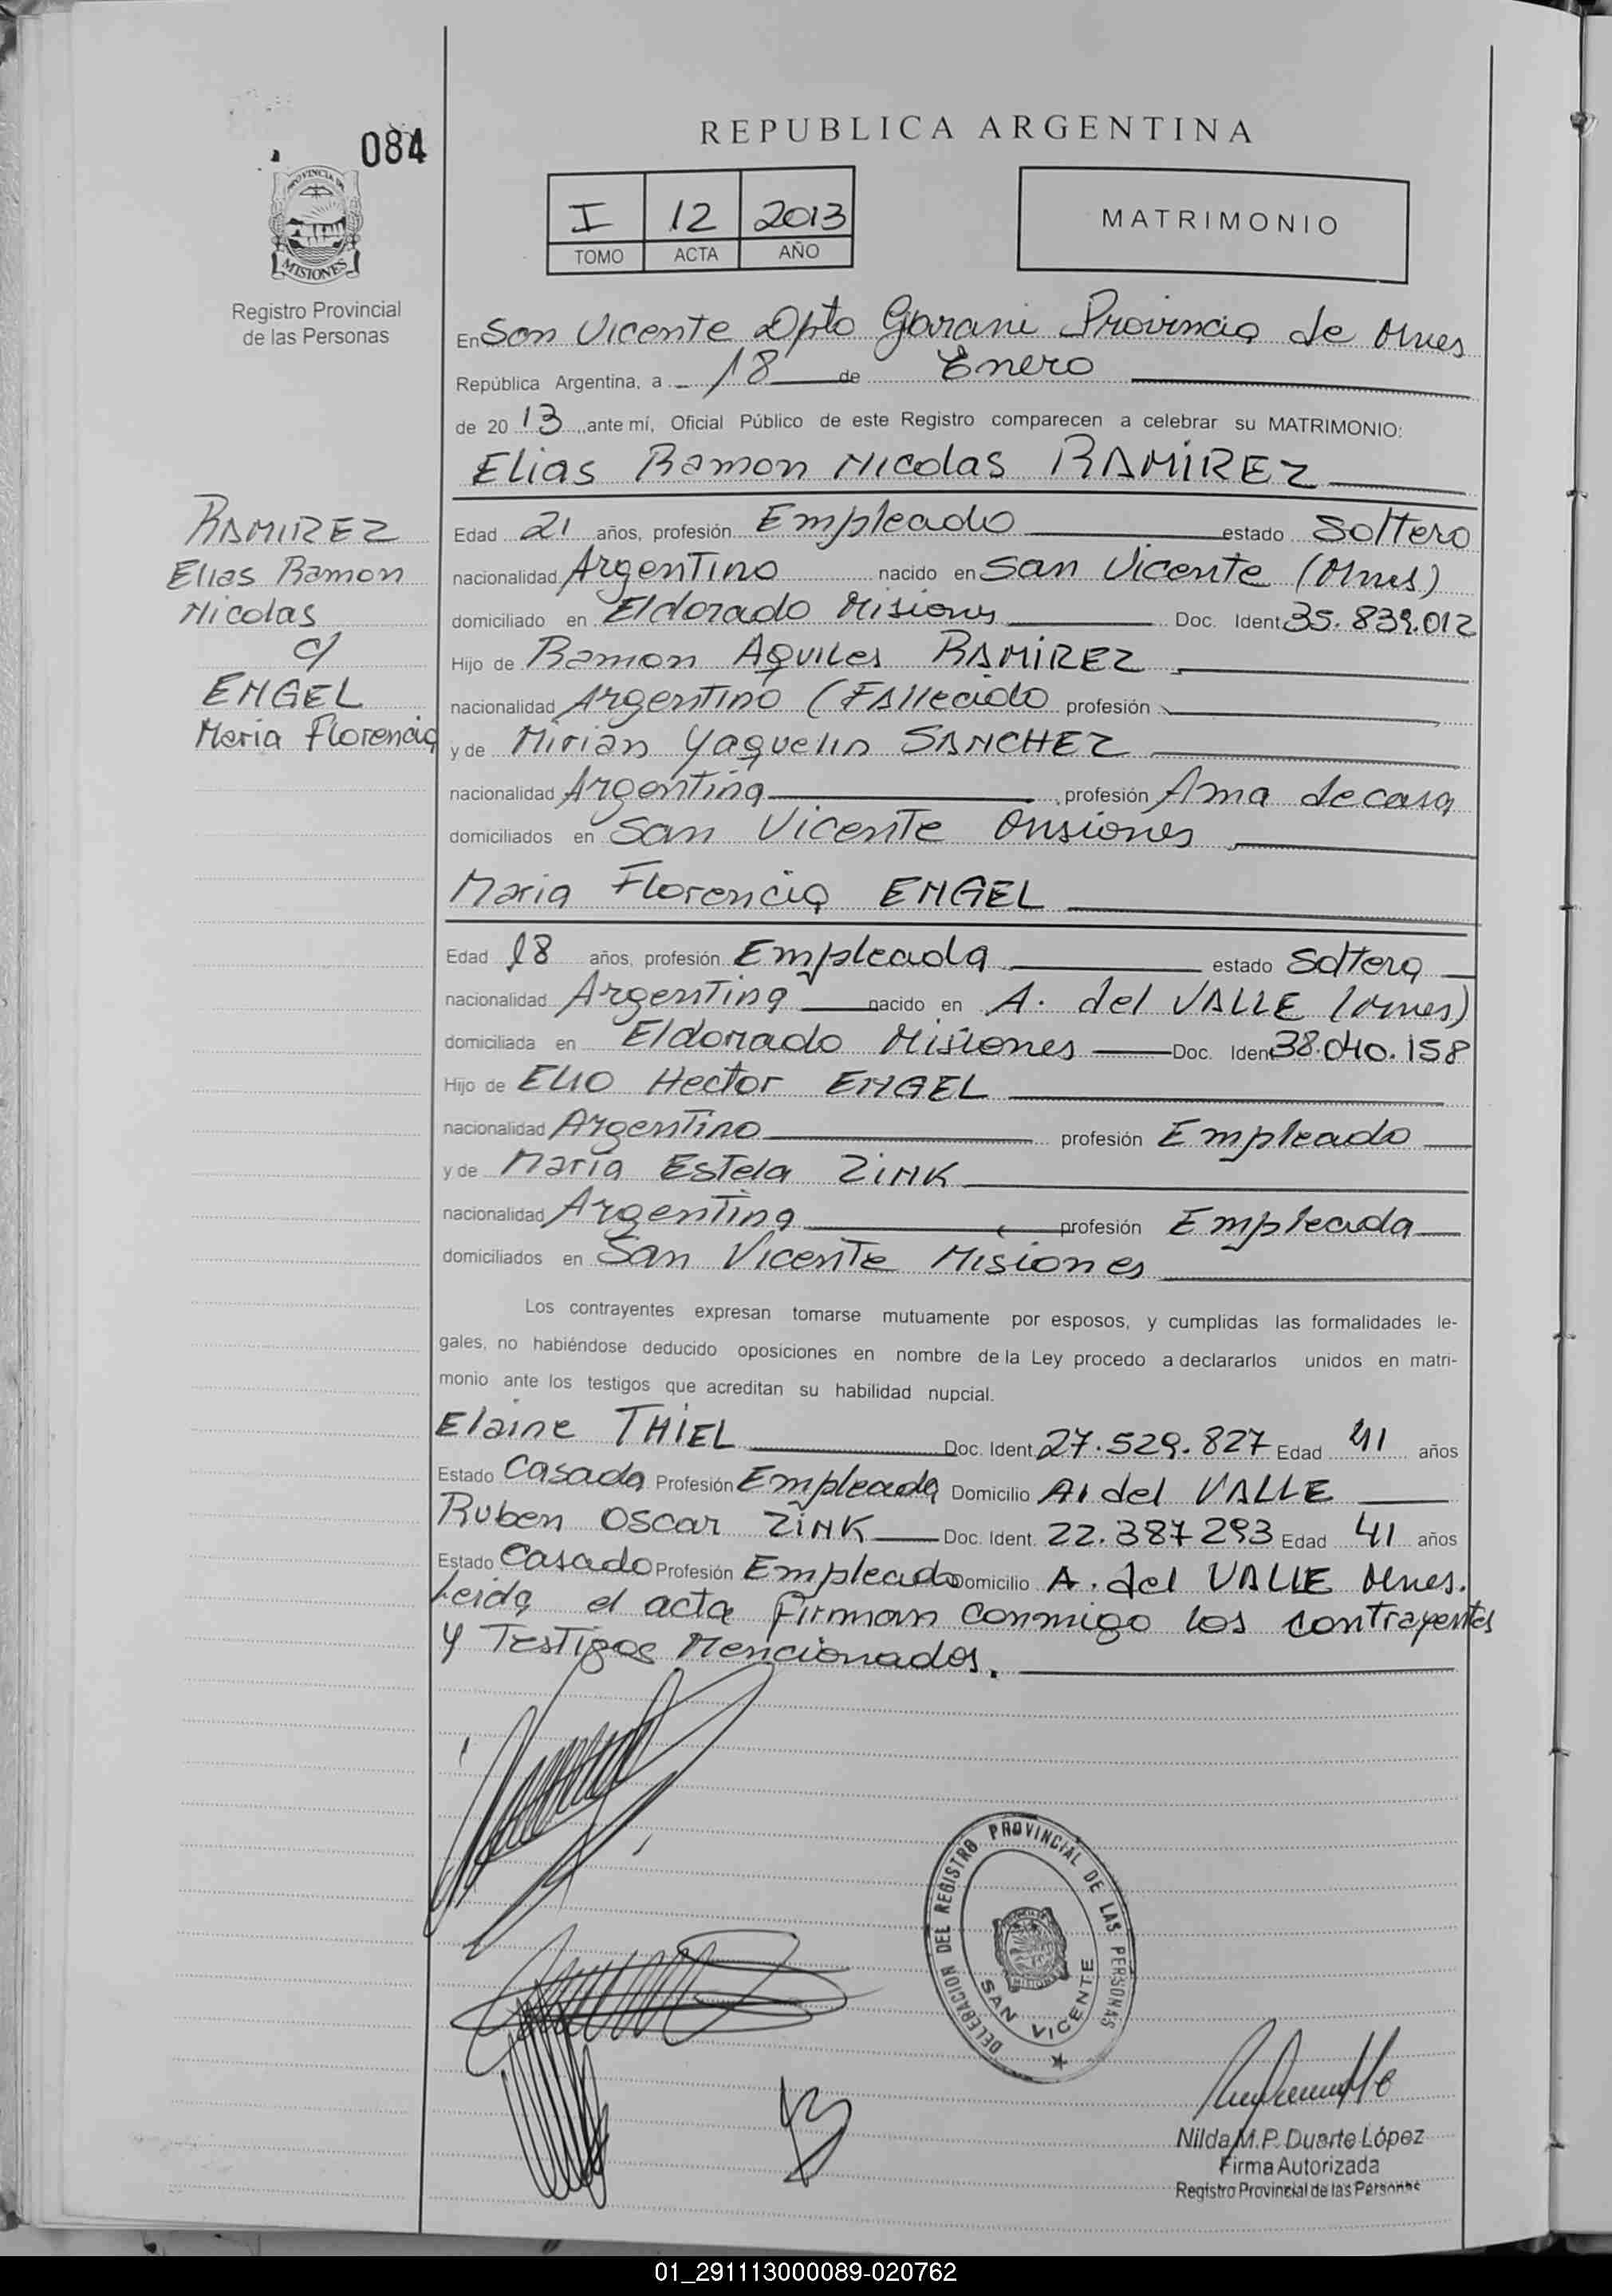 084
REPUBLICA ARGENTINA
I 12 2013
TOMO ACTA AÑO
MATRIMONIO
PROVINCIA DE
MISIONES
Registro Provincial
de las Personas
En San Vicente Dpto Garani Provincia de Mnes
República Argentina, a 18 de Enero
de 20 13 ante mí, Oficial Público de este Registro comparecen a celebrar su MATRIMONIO:
Elias Ramon Nicolas RAMIREZ
RAMIREZ
Elias Ramon
Nicolas
c/
ENGEL
Maria Florencia
Edad 21 años, profesión Empleado estado Soltero
nacionalidad Argentino nacido en San Vicente (Mnes)
domiciliado en Eldorado Misiones Doc. Ident 35.839.012
Hijo de Ramon Aquiles RAMIREZ
nacionalidad Argentino (Fallecido profesión
y de Mirian Yaquelin SANCHEZ
nacionalidad Argentina profesión Ama de casa
domiciliados en San Vicente Misiones
Maria Florencia ENGEL
Edad 18 años, profesión Empleada estado Soltera
nacionalidad Argentina nacido en A. del VALLE (Mnes)
domiciliada en Eldorado Misiones Doc. Ident 38.040.158
Hijo de Elio Hector ENGEL
nacionalidad Argentino profesión Empleado
y de Maria Estela ZINK
nacionalidad Argentina profesión Empleada
domiciliados en San Vicente Misiones
Los contrayentes expresan tomarse mutuamente por esposos, y cumplidas las formalidades le-
gales, no habiéndose deducido oposiciones en nombre de la Ley procedo a declararlos unidos en matri-
monio ante los testigos que acreditan su habilidad nupcial.
Elaine THIEL Doc. Ident. 27.529.827 Edad 41 años
Estado Casada Profesión Empleada Domicilio A. del VALLE
Ruben Oscar ZINK Doc. Ident. 22.387293 Edad 41 años
Estado Casado Profesión Empleado Domicilio A. del VALLE Mnes.
Leida el acta firman conmigo los contrayentes
y Testigos Mencionados.
DELEGACION DEL REGISTRO PROVINCIAL DE LAS PERSONAS
SAN VICENTE
Nilda M.P. Duarte López
Firma Autorizada
Registro Provincial de las Personas
01_291113000089-020762